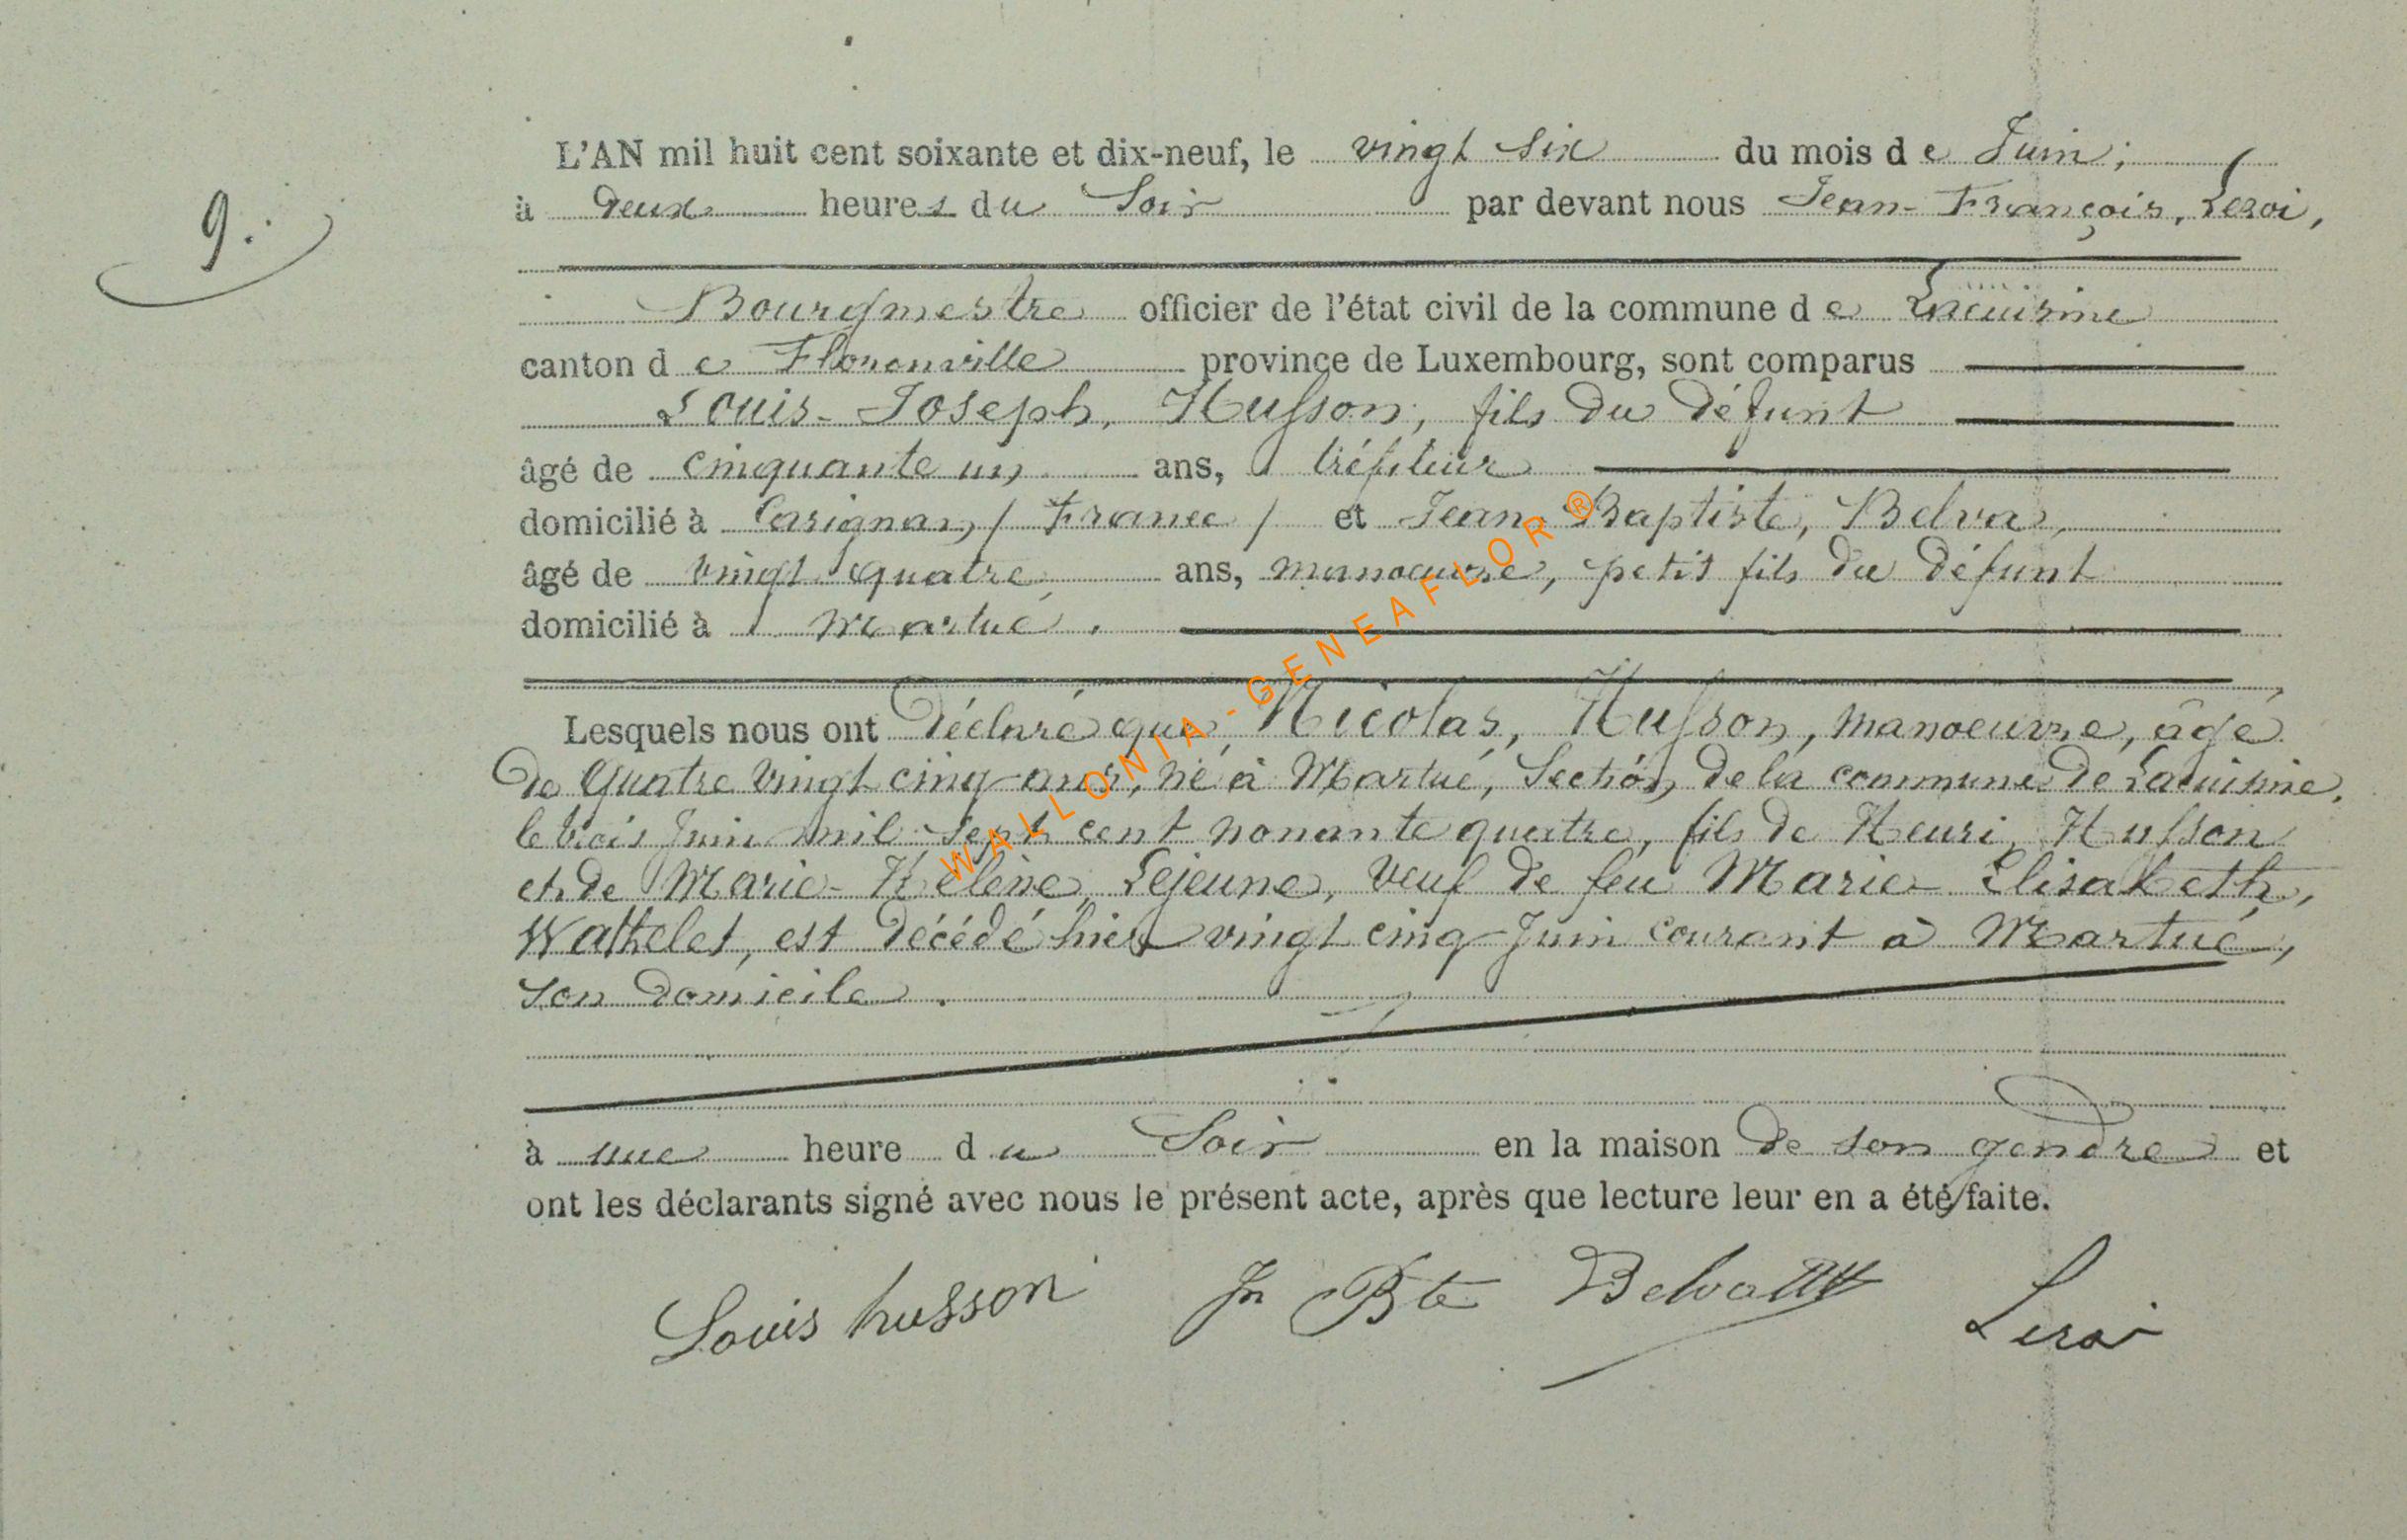 9.
L'AN mil huit cent soixante et dix-neuf, le vingt six du mois de Juin;
à deux heures du Soir par devant nous Jean-François, Leroi,
Bourgmestre officier de l'état civil de la commune de Lacuisine
canton de Florenville province de Luxembourg, sont comparus
Louis-Joseph, Husson, fils du défunt
âgé de cinquante un ans, tréfileur
domicilié à Carignan, / France / et Jean-Baptiste, Belva,
âgé de vingt quatre ans, manoeuvre, petit fils du défunt
domicilié à Martué.
Lesquels nous ont déclaré que, Nicolas, Husson, manoeuvre, âgé
de quatre vingt cinq ans, né à Martué, Section de la commune de Lacuisine,
le trois Juin mil sept cent nonante quatre, fils de Henri, Husson
et de Marie-Hélène, Lejeune, veuf de feu Marie-Elisabeth,
Wathelet, est décédé hier vingt cinq Juin courant à Martué,
son domicile.
à une heure du Soir en la maison de son gendre et
ont les déclarants signé avec nous le présent acte, après que lecture leur en a été faite.
Louis husson Jn Bte Belva Leroi
WALLONIA-GENEAFLOR®